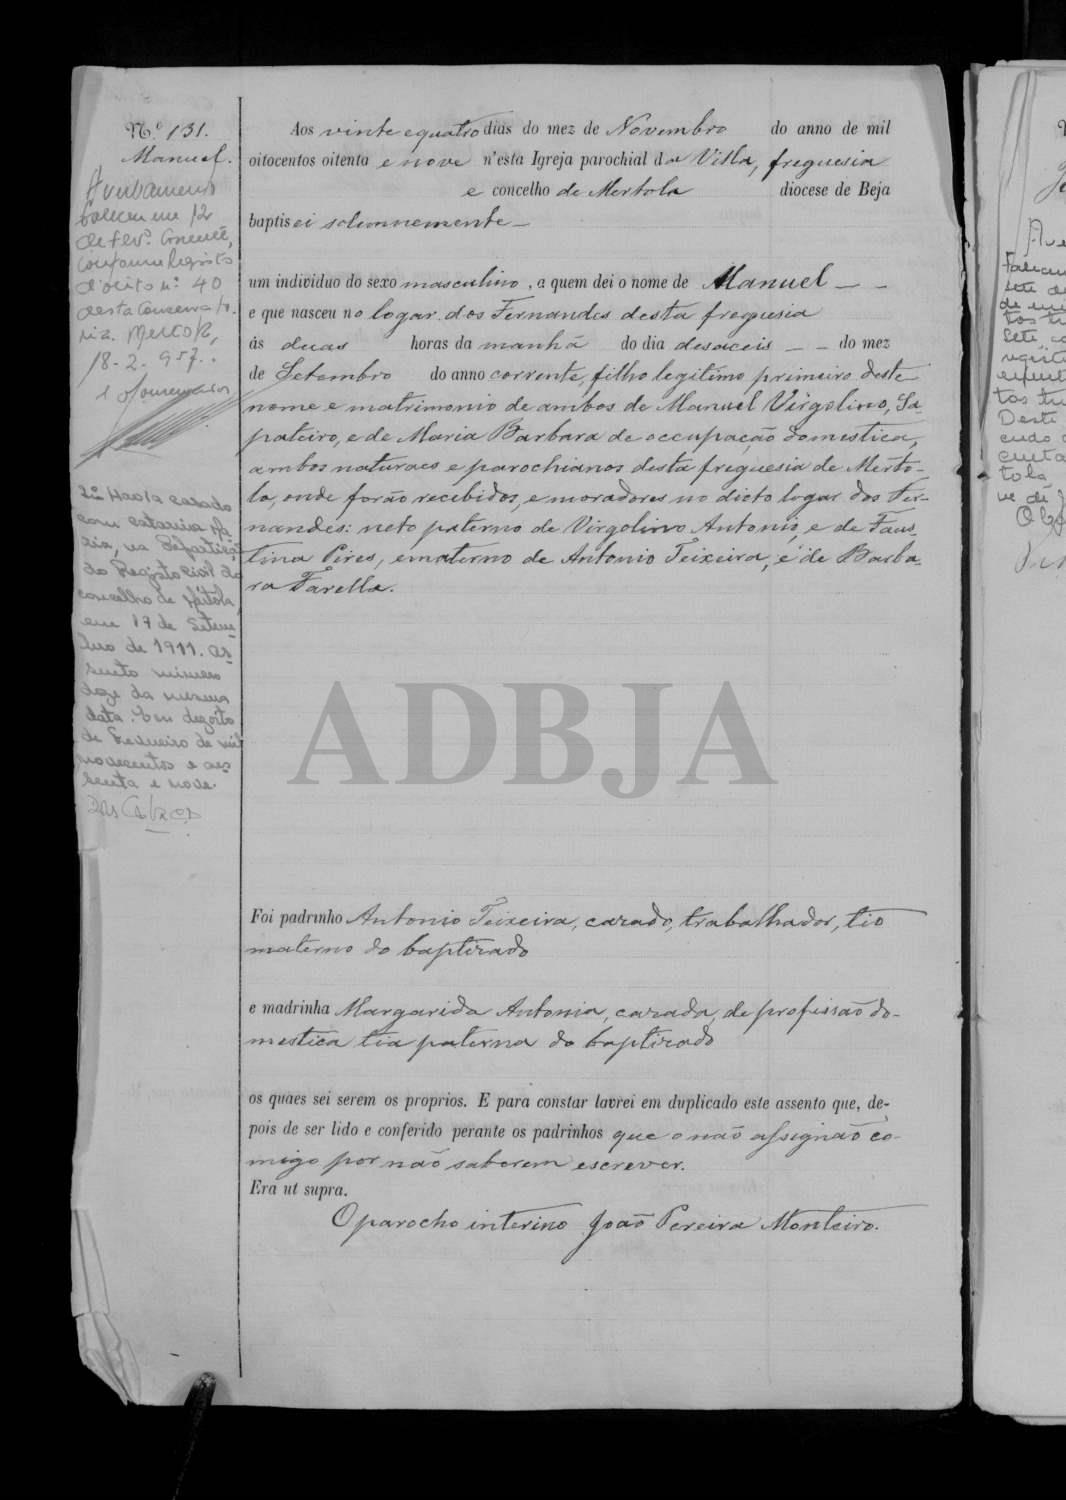 Nº 131.
Manuel.
Averbamento
Faleceu em 12
de Fevº. corrente,
conforme Registo
d'obito nº 40
desta Conservato-
ria. Mertola,
18-2-957.
O Conservador
Havia casado
com Catarina
na Repartição
do Registo Civil do
concelho de Mértola,
em 17 de Setem-
bro de 1911. as-
sento numero
doze da mesma
data. Em dezoito
de Fevereiro de mil
novecentos e ses-
senta e nove.
Aos vinte e quatro dias do mez de Novembro do anno de mil
oitocentos oitenta e nove n'esta Igreja parochial da Villa, freguesia
e concelho de Mertola diocese de Beja
baptisei solemnemente —
um individuo do sexo masculino, a quem dei o nome de Manuel — —
e que nasceu no logar dos Fernandes desta freguesia
ás duas horas da manhã do dia desaceis — — do mez
de Setembro do anno corrente, filho legitimo primeiro deste
nome e matrimonio de ambos de Manuel Virgolino, Sa-
pateiro, e de Maria Barbara de occupação domestica,
ambos naturaes e parochianos desta freguesia de Merto-
la, onde forão recebidos, e moradores no dicto logar dos Fer-
nandes: neto paterno de Virgolino Antonio, e de Faus-
tina Pires, e materno de Antonio Teixeira, e de Barba-
ra Farella.
ADBJA
Foi padrinho Antonio Teixeira, cazado, trabalhador, tio
materno do baptizado
e madrinha Margarida Antonia, cazada, de profissão do-
mestica tia paterna do baptizado
os quaes sei serem os proprios. E para constar lavrei em duplicado este assento que, de-
pois de ser lido e conferido perante os padrinhos que o não assignão co-
migo por não saberem escrever.
Era ut supra.
O parocho interino João Pereira Monteiro.